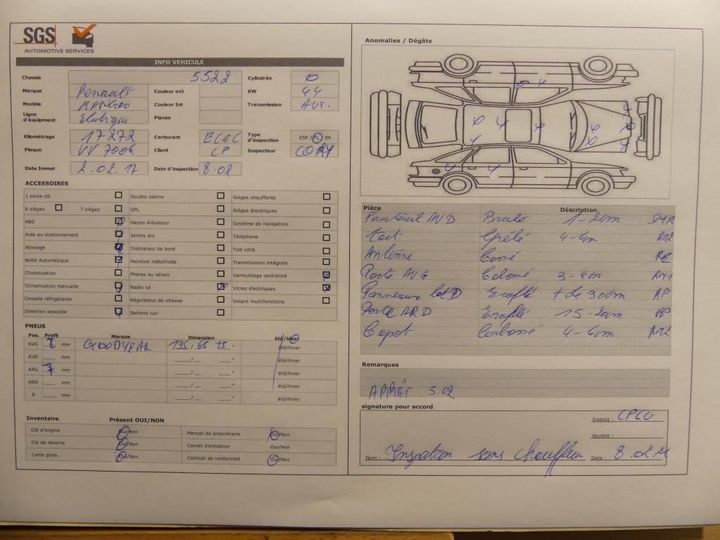 SGS
AUTOMOTIVE SERVICES
INFO VEHICULE
Chassis 5522 Cylindrée 0
Marque Renault Couleur ext KW 44
Modèle Couleur Int Transmission AUT.
Ligne d'équipement Places
Kilométrage 17272 Carburant Elec Type d'inspection ESP PL IM
Plaque VV 7006 Client LP Inspecteur CORY
Date Immat 2.02.17 Date d'inspection 8.02
ACCESSOIRES
1 seule clé Double cabine Sièges chauffants
6 sièges 7 sièges GPL Sièges électriques
ABS Hayon élévateur Système de navigation
Aide au stationnement Jantes alu Téléphone
Attelage Ordinateur de bord Toit vitré
Boîte Automatique Peinture métallisée Transmission intégrale
Climatisation Phares au xénon Verrouillage centralisé
Climatisation manuelle Radio cd Vitres électriques
Console réfrigérante Régulateur de vitesse Volant multifonctions
Direction assistée Sellerie cuir
PNEUS
Pos. Profil Marque Dimension été/hiver
AVG 6 mm GOODYEAR 195/65 15 été/hiver
AVD mm été/hiver
ARG 7 mm été/hiver
ARD mm été/hiver
R mm été/hiver
Inventaire Présent OUI/NON
Clé d'origine Oui/Non Manuel de propriétaire Oui/Non
Clé de réserve Oui/Non Carnet d'entretien Oui/Non
Carte grise Oui/Non Certificat de conformité Oui/Non
Anomalies / Dégâts
Pièce Déscription
Fauteuil AVD Brulé 1-2cm
Toit Grêlé 4-4m
Antenne Cassé
Porte AVG 3-4m
Panneau lat D Eraflé + de 30cm RP
Porte ARD Eraflé 15-20cm RP
Capot 4-4m
Remarques
ARRÊT 5.02
signature pour accord
Endroit : CPLU
Société :
Nom : Inspection sans chauffeur Date : 8.02.17